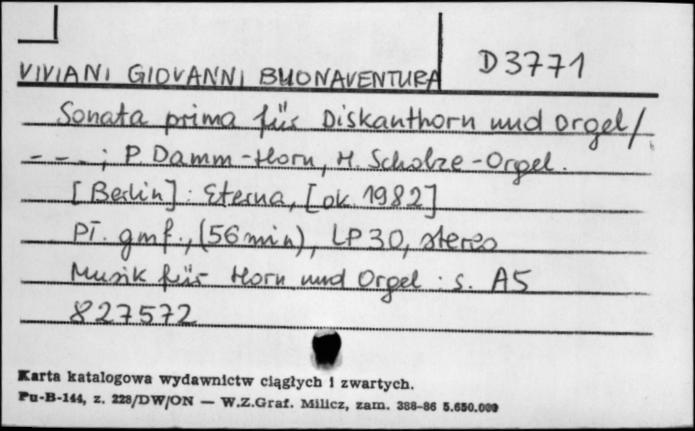 VIVIANI GIOVANNI BUONAVENTURA D3771
Sonata prima für Diskanthorn und Orgel/
- - - ; P. Damm-Horn, H. Scholze-Orgel.
[Berlin] : Eterna, [ok. 1982]
Pł. gmf., (56 min), LP 30, stereo
Musik für Horn und Orgel : s. A5
827572
Karta katalogowa wydawnictw ciągłych i zwartych.
Pu-B-144, z. 228/DW/ON — W.Z.Graf. Milicz, zam. 388-86 5.650.000